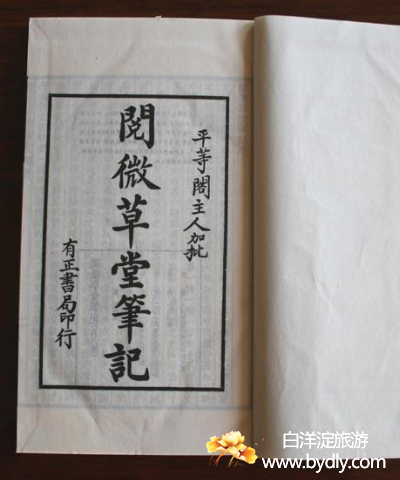 平等閣主人加批
閱微草堂筆記
有正書局印行
白洋淀旅游
www.bydly.com